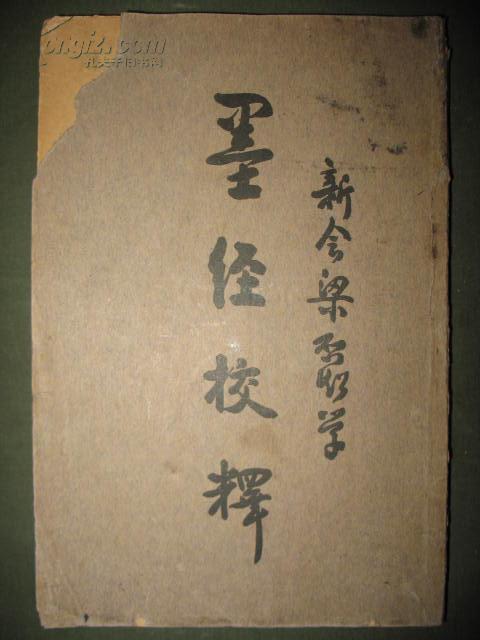 新会梁啟超学
墨经校釋
孔夫子旧书网